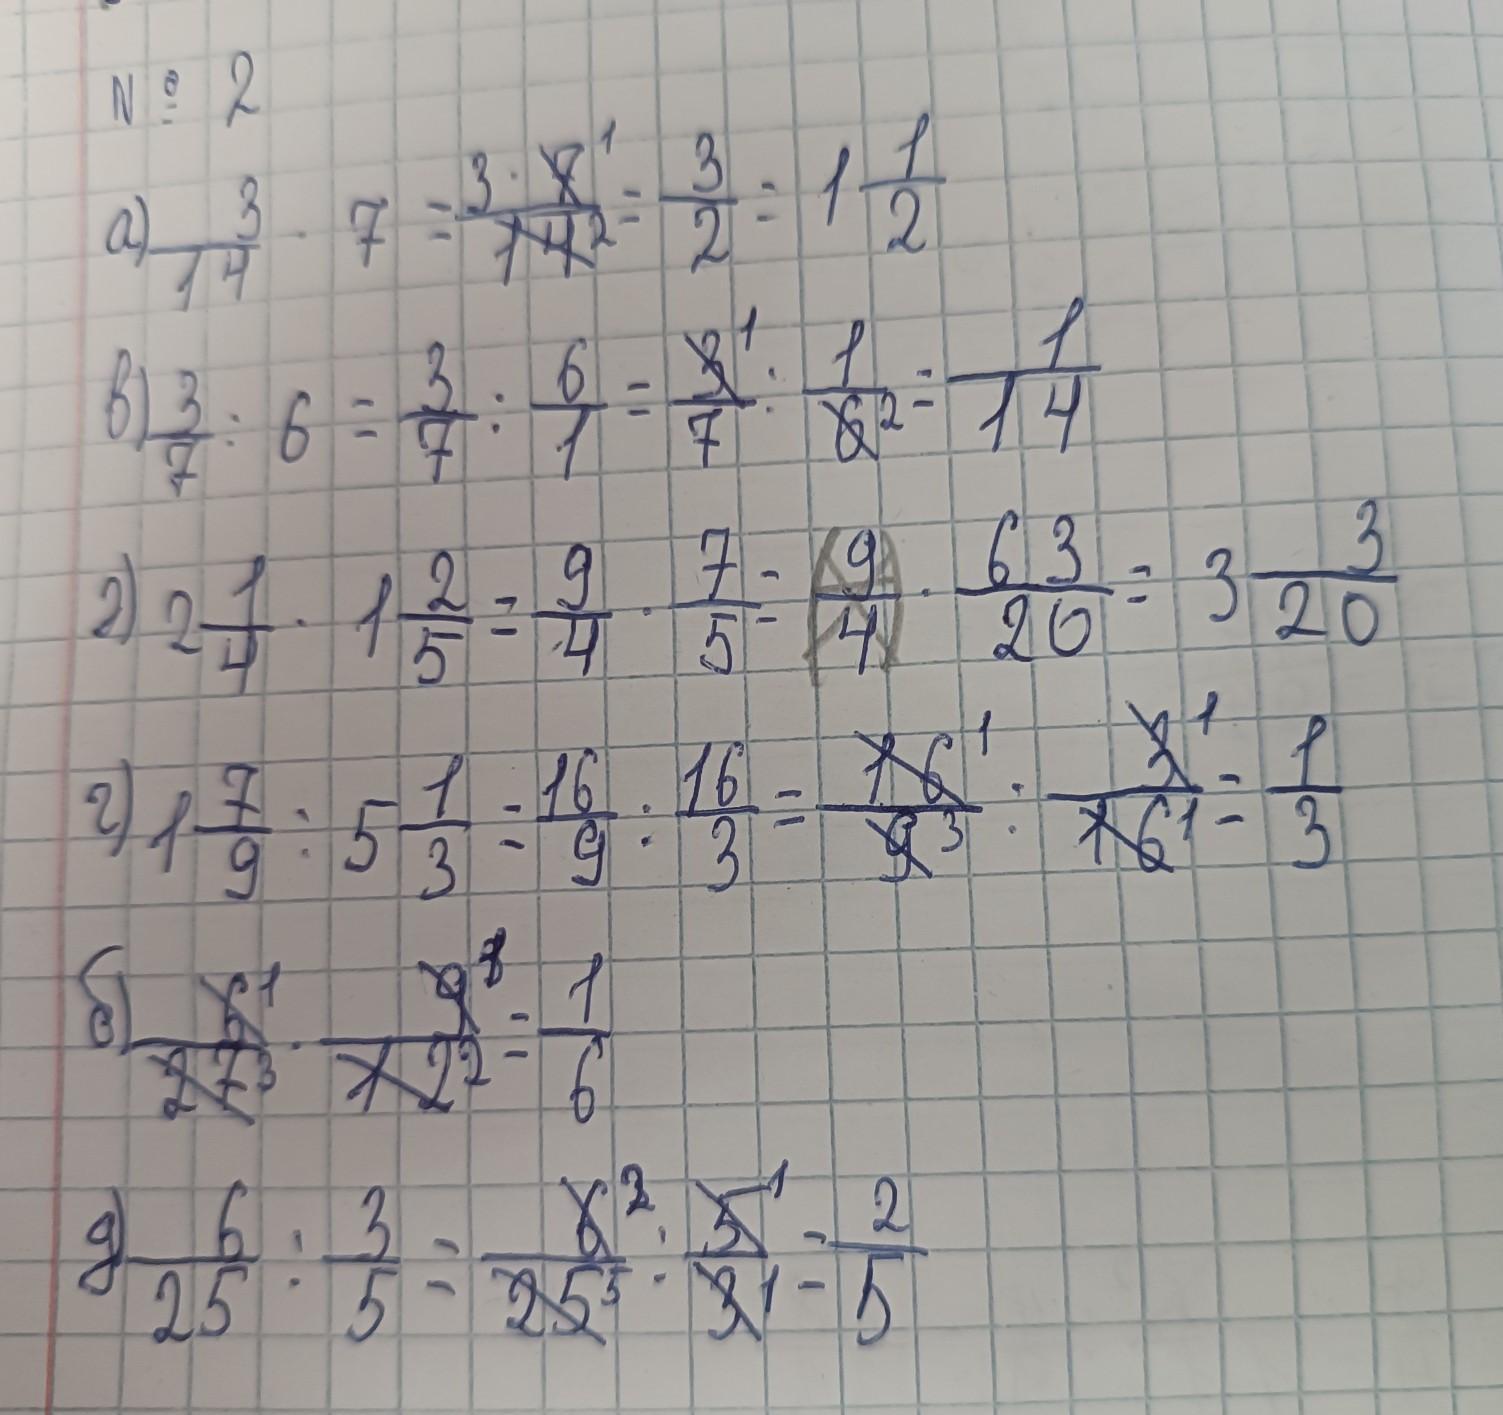 № 2
а) 3/14 · 7 = 3·7¹/14² = 3/2 = 1 1/2
в) 3/7 : 6 = 3/7 : 6/1 = 3¹/7 : 1/6² = 1/14
г) 2 1/4 · 1 2/5 = 9/4 · 7/5 = (9/4) · 63/20 = 3 3/20
г) 1 7/9 : 5 1/3 = 16/9 : 16/3 = 16¹/9³ : 3¹/16¹ = 1/3
б) 6¹/27³ · 9¹/12² = 1/6
д) 6/25 : 3/5 = 6²/25⁵ : 5¹/3¹ = 2/5